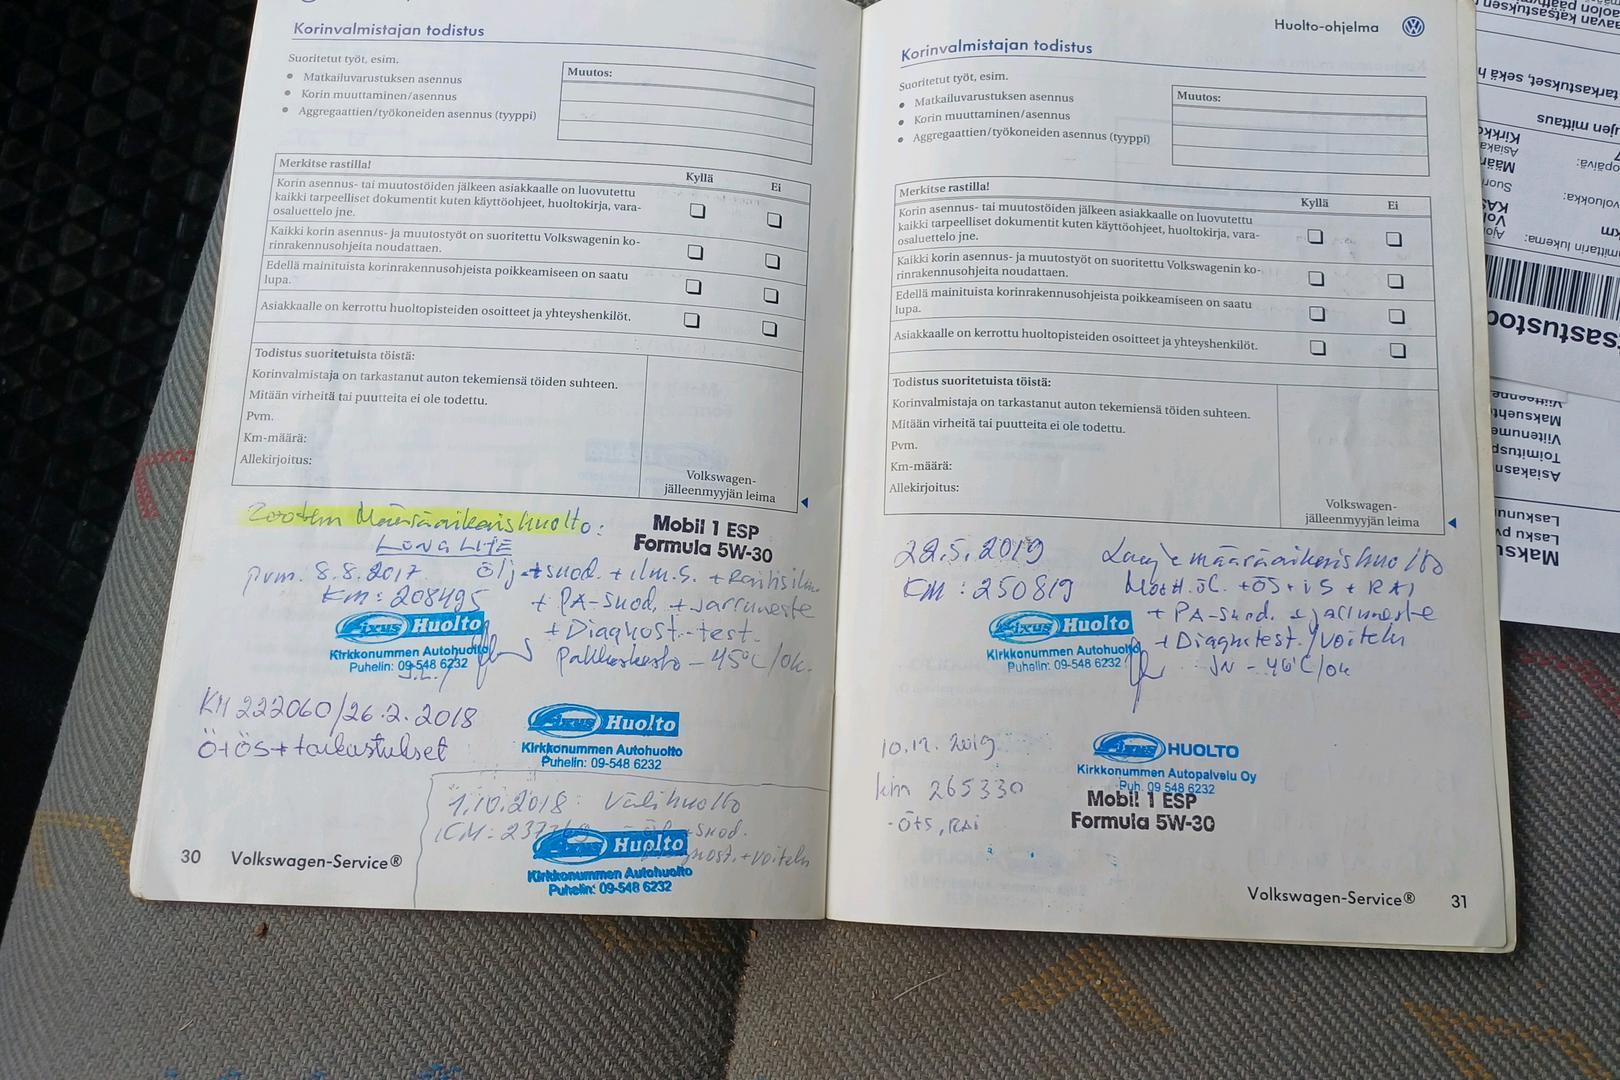 Korinvalmistajan todistus
Suoritetut työt, esim.
Matkailuvarustuksen asennus
Korin muuttaminen/asennus
Aggregaattien/työkoneiden asennus (tyyppi)
Muutos:
Merkitse rastilla!
Kyllä
Ei
Korin asennus- tai muutostöiden jälkeen asiakkaalle on luovutettu
kaikki tarpeelliset dokumentit kuten käyttöohjeet, huoltokirja, vara-
osaluettelo jne.
Kaikki korin asennus- ja muutostyöt on suoritettu Volkswagenin ko-
rinrakennusohjeita noudattaen.
Edellä mainituista korinrakennusohjeista poikkeamiseen on saatu
lupa.
Asiakkaalle on kerrottu huoltopisteiden osoitteet ja yhteyshenkilöt.
Todistus suoritetuista töistä:
Korinvalmistaja on tarkastanut auton tekemiensä töiden suhteen.
Mitään virheitä tai puutteita ei ole todettu.
Pvm.
Km-määrä:
Allekirjoitus:
Volkswagen-
jälleenmyyjän leima
Määräaikaishuolto:
LONG LIFE
Mobil 1 ESP
Formula 5W-30
pvm. 8.8.2017
KM: 208495
+ PA-suod. + jarruneste
+ Diagnost.-test.
Pakkaskesto - 45°C/ok.
Fixus Huolto
Kirkkonummen Autohuolto
Puhelin: 09-548 6232
KM 222060/26.2.2018
Ö+ÖS+tarkastukset
Fixus Huolto
Kirkkonummen Autohuolto
Puhelin: 09-548 6232
1.10.2018: Välihuolto
KM:
suod.
+voitelu
Fixus Huolto
Kirkkonummen Autohuolto
Puhelin: 09-548 6232
30 Volkswagen-Service®
Huolto-ohjelma
Korinvalmistajan todistus
Suoritetut työt, esim.
Matkailuvarustuksen asennus
Korin muuttaminen/asennus
Aggregaattien/työkoneiden asennus (tyyppi)
Muutos:
Merkitse rastilla!
Kyllä
Ei
Korin asennus- tai muutostöiden jälkeen asiakkaalle on luovutettu
kaikki tarpeelliset dokumentit kuten käyttöohjeet, huoltokirja, vara-
osaluettelo jne.
Kaikki korin asennus- ja muutostyöt on suoritettu Volkswagenin ko-
rinrakennusohjeita noudattaen.
Edellä mainituista korinrakennusohjeista poikkeamiseen on saatu
lupa.
Asiakkaalle on kerrottu huoltopisteiden osoitteet ja yhteyshenkilöt.
Todistus suoritetuista töistä:
Korinvalmistaja on tarkastanut auton tekemiensä töiden suhteen.
Mitään virheitä tai puutteita ei ole todettu.
Pvm.
Km-määrä:
Allekirjoitus:
Volkswagen-
jälleenmyyjän leima
22.5.2019 Laaje määräaikaishuolto
KM: 250819
+ PA-suod. + jarruneste
+ Diagn.test./voitelu
JN - 46°C/ok
Fixus Huolto
Kirkkonummen Autohuolto
Puhelin: 09-548 6232
10.12.2019
km 265330
Fixus HUOLTO
Kirkkonummen Autopalvelu Oy
Puh. 09 548 6232
Mobil 1 ESP
Formula 5W-30
Volkswagen-Service® 31